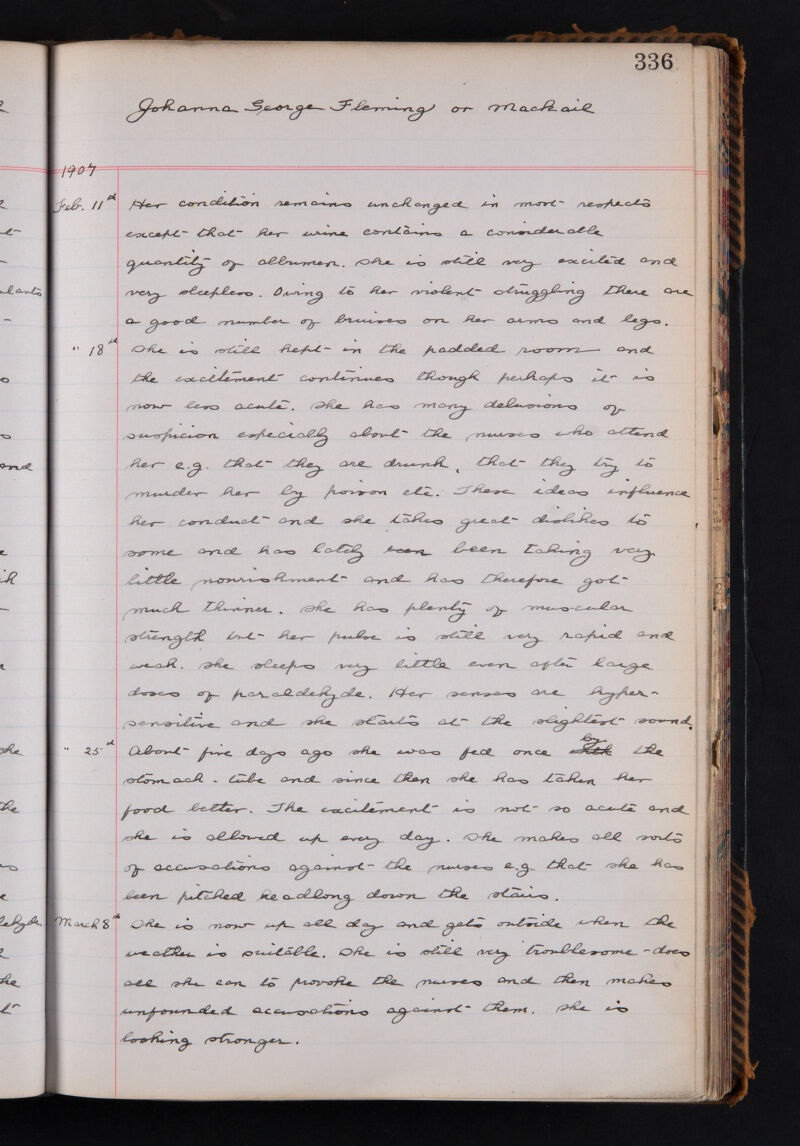 336
Johanna George Fleming or Mackail
1907
Feb. 11th Her condition remains unchanged in most respects
except that her urine contains a considerable
quantity of albumen. She is still very excited and
very sleepless. Owing to her violent struggling there are
a good number of bruises on her arms and legs.
" 18th She is still kept in the padded room and
the excitement continues though perhaps it is
now less acute. She has many delusions of
suspicion especially about the nurses who attend
her e.g. that they are drunk, that they try to
murder her by poison etc. These ideas influence
her conduct and she takes great dislikes to
some and has lately been taking very
little nourishment and has therefore got
much thinner. She has plenty of muscular
strength but her pulse is still very rapid and
weak. She sleeps very little even after large
doses of paraldehyde. Her senses are hyper-
sensitive and she starts at the slightest sound.
" 25th About five days ago she was fed once by the
stomach-tube and since then she has taken her
food better. The excitement is not so acute and
she is allowed up every day. She makes all sorts
of accusations against the nurses e.g. that she has
been pitched headlong down the stairs.
March 8th She is now up all day and gets outside when the
weather is suitable. She is still very troublesome - does
all she can to provoke the nurses and then makes
unfounded accusations against them. She is
looking stronger.